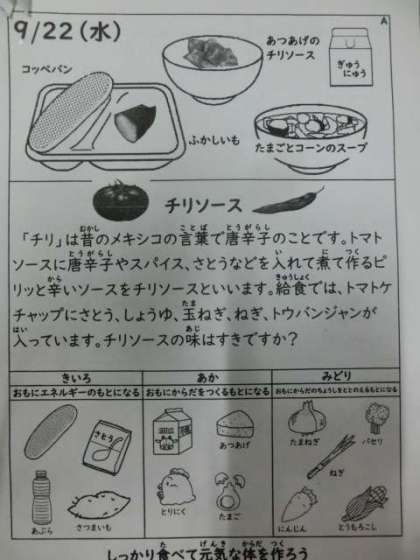 9/22(水)
A
コッペパン
あつあげの
チリソース
ぎゅう
にゅう
ふかしいも
たまごとコーンのスープ
チリソース
「チリ」は昔のメキシコの言葉で唐辛子のことです。トマト
ソースに唐辛子やスパイス、さとうなどを入れて煮て作るピ
リッと辛いソースをチリソースといいます。給食では、トマトケ
チャップにさとう、しょうゆ、玉ねぎ、ねぎ、トウバンジャンが
入っています。チリソースの味はすきですか?
きいろ
おもにエネルギーのもとになる
さとう
あぶら
さつまいも
あか
おもにからだをつくるもとになる
あつあげ
とりにく
たまご
みどり
おもにからだのちょうしをととのえるもとになる
たまねぎ
パセリ
ねぎ
にんじん
とうもろこし
しっかり食べて元気な体を作ろう